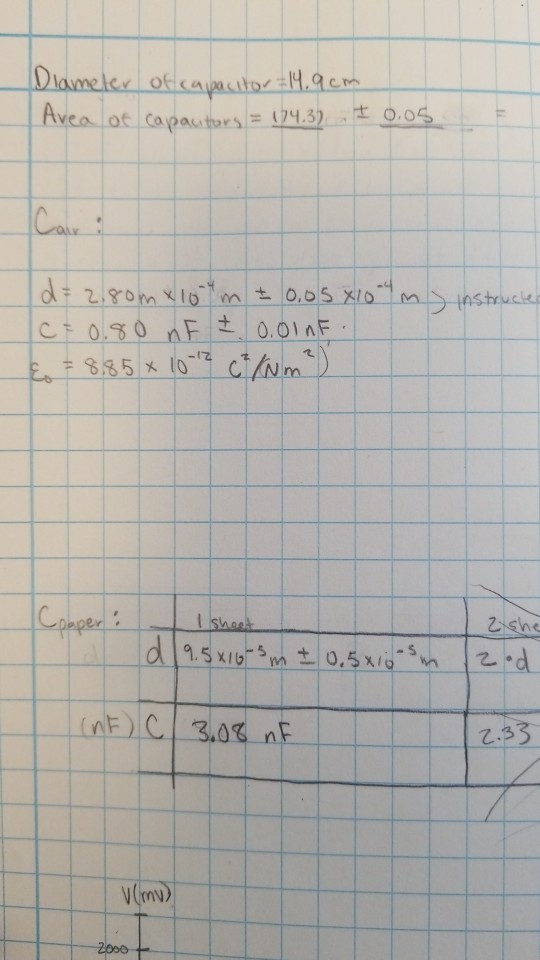 Diameter of capacitor = 14.9 cm
Area of capacitors = 174.37 ± 0.05 =
Cair :
d = 2.80m × 10⁻⁴ m ± 0.05 × 10⁻⁴ m } instructe
C = 0.80 nF ± 0.01 nF.
ε₀ = 8.85 × 10⁻¹² C²/(Nm²)
Cpaper : 1 sheet 2 she
d 9.5×10⁻⁵m ± 0.5×10⁻⁵m 2•d
(nF) C 3.08 nF 2.33
V(mv)
2000